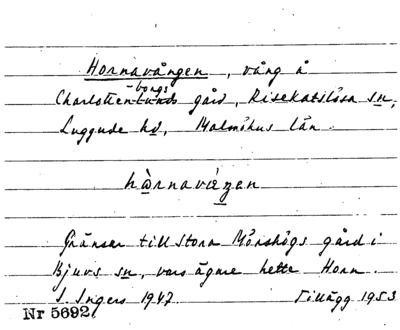 Hornavången, vång å
Charlottenborgs gård, Risekatslösa sn,
Luggude hd, Malmöhus län.
hòrnavéŋen
Gränser till Stora Mörshögs gård i
Bjuvs sn, vars ägare hette Horn.
I. Ingers 1947 Tillägg 1953
Nr 5692